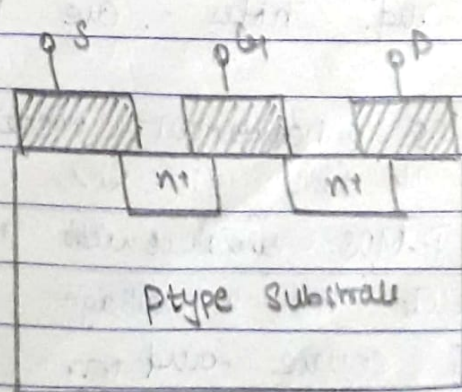 S G D
n+ n+
Ptype Substrate